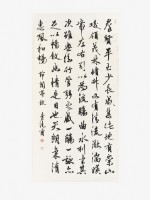 羣賢畢至少長咸集此地有崇山
峻領茂林修竹又有清流激湍映
帶左右引以為流觴曲水列坐其
次雖無絲竹管弦之盛一觴一詠亦
足以暢敘幽情是日也天朗氣清
惠風和暢